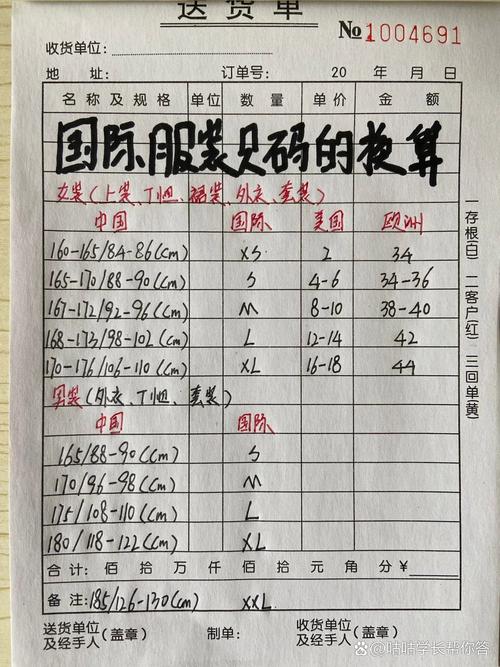 送货单
收货单位：
№1004691
地 址： 订单号： 20 年 月 日
名称及规格 单位 数量 单价 金额
国际服装尺码的换算
女装(上装、T恤、裙装、外衣、套装)
中国 国际 美国 欧洲
160-165/84-86(cm) XS 2 34
165-170/88-90(cm) S 4-6 34-36
167-172/92-96(cm) M 8-10 38-40
168-173/98-102(cm) L 12-14 42
170-176/106-110(cm) XL 16-18 44
男装(外衣、T恤、套装)
中国 国际
165/88-90(cm) S
170/96-98(cm) M
175/108-110(cm) L
180/118-122(cm) XL
合计： 佰 拾 万 仟 佰 拾 元 角 分¥
备注：185/126-130(cm) XXL
送货单位及经手人(盖章) 制单： 收货单位及经手人(盖章)
一存根(白) 二客户(红) 三回单(黄)
@咕咕学长帮你答